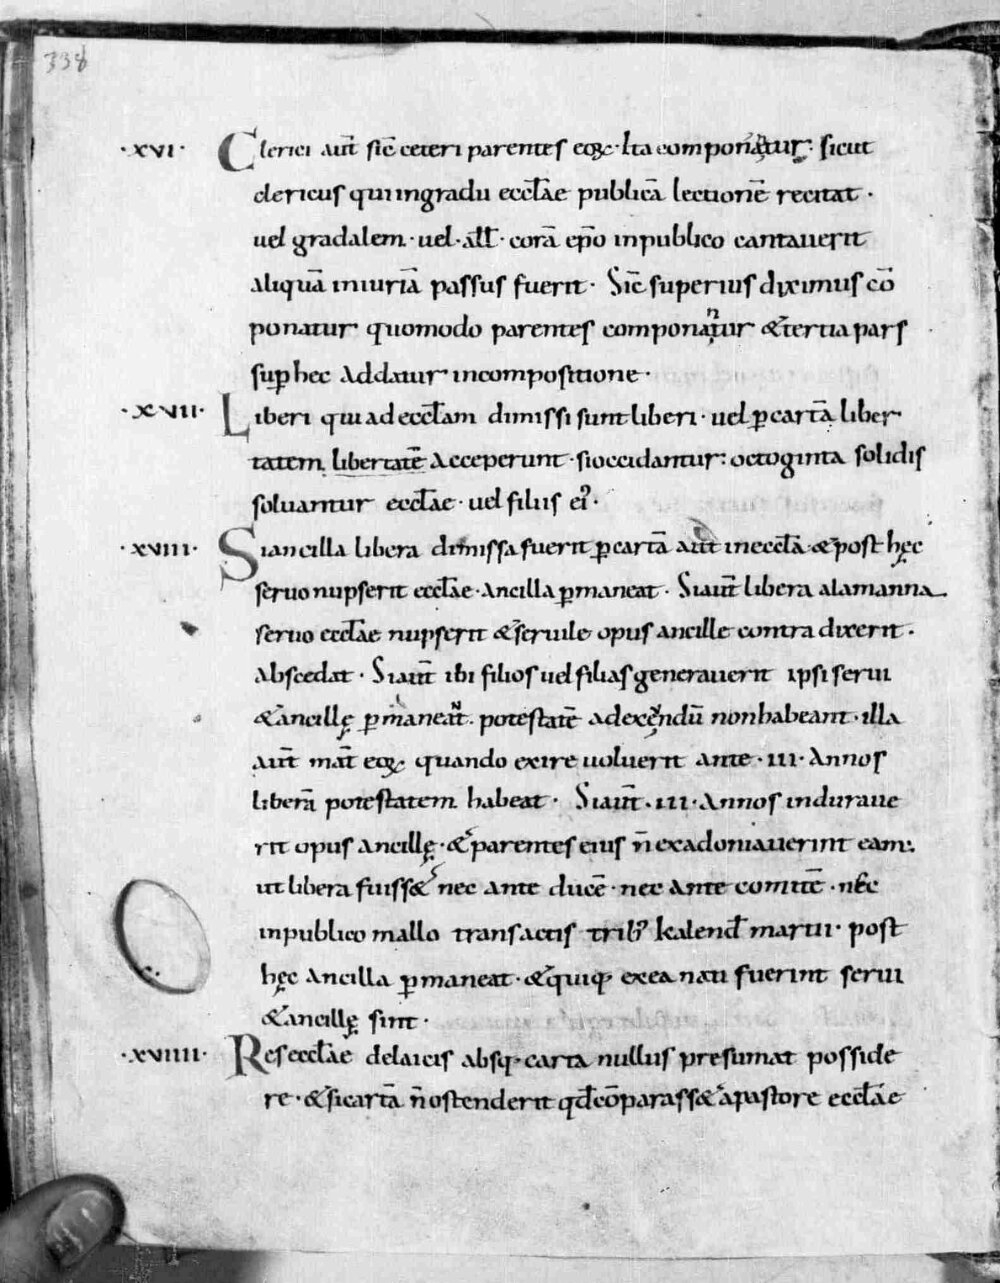 338
·xvi· Clerici aut̄ sic̄ ceteri parentes eoꝝ· Ita componatur· sicut
clericus qui ingradu eccl̄ae publicā lectionē recitat·
uel gradalem· uel· all̄· corā ep̄o inpublico cantauerit
aliquā iniuriā passus fuerit· Sic̄ superius diximus cō
ponatur quomodo parentes componaⁿtur &tertia pars
sup̲ hec addatur incompositione·
·xvii· Liberi qui ad eccl̄am dimissi sunt liberi· uel ꝑcartā liber
tatem libertatē acceperunt· sioccidantur: octoginta solidis
soluantur eccl̄ae· uel filiis ei᾿·
·xviii· Siancilla libera dimissa fuerit ꝑcartā aut̄ ineccl̄a· &post hęc
seruo nupserit eccl̄ae· ancilla ꝑmaneat· Siaut̄ libera alamanna
seruo eccl̄ae nupserit &seruile opus ancille contra dixerit·
abscedat· Siaut̄ ibi filios uel filias generauerit ipsi serui
&ancillę ꝑmaneant· potestatē adexeundū nonhabeant· illa
aut̄ mat̄ eoꝝ quando exire uoluerit ante· iii· Annos
liberā potestatem habeat· Siaut̄· iii· Annos induraue
rit opus ancillę· &parentes eius n̄ exadoniauerint eam:
ut libera fuiss& nec ante ducē· nec ante comitē· nec
inpublico mallo transactis trib᾿ kalend̄ martii· post
hęc ancilla ꝑmaneat· &quiqꝫ exea nati fuerint serui
&ancillę sint·
·xviiii· Res eccl̄ae delaicis absqꝫ carta nullus presumat posside
re· &sicartā n̄ostenderit qd̄ cōparass& apastore eccl̄ae